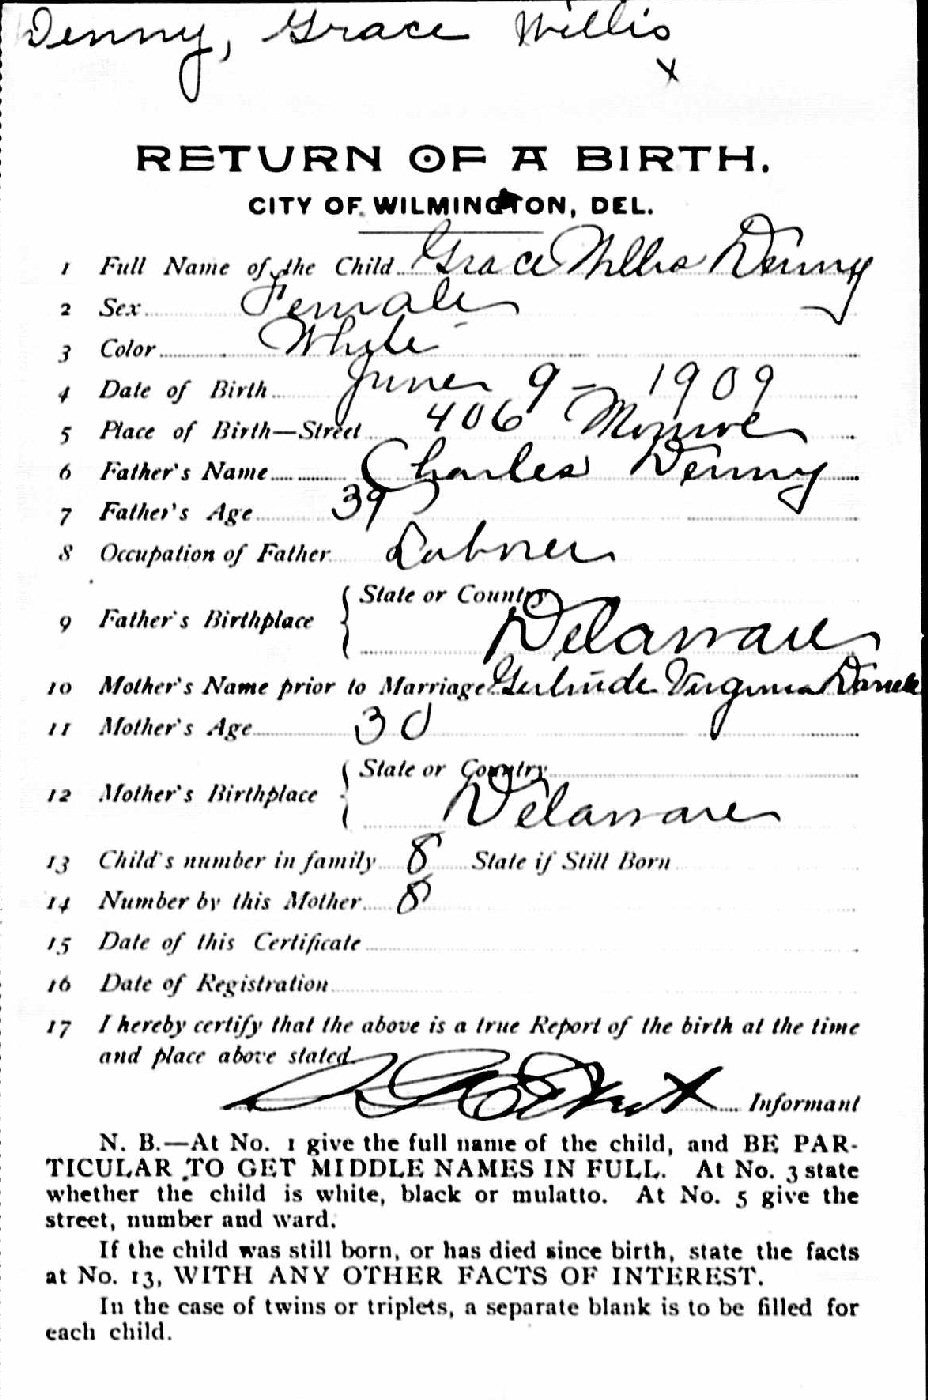 Denny, Grace Willis
x
RETURN OF A BIRTH.
CITY OF WILMINGTON, DEL.
1 Full Name of the Child Grace Willis Denny
2 Sex Female
3 Color White
4 Date of Birth June 9 - 1909
5 Place of Birth—Street 406 Monroe
6 Father's Name Charles Denny
7 Father's Age 39
8 Occupation of Father Laborer
9 Father's Birthplace { State or Country Delaware
10 Mother's Name prior to Marriage Gertrude Virginia
11 Mother's Age 30
12 Mother's Birthplace { State or Country Delaware
13 Child's number in family 8 State if Still Born
14 Number by this Mother 8
15 Date of this Certificate
16 Date of Registration
17 I hereby certify that the above is a true Report of the birth at the time
and place above stated
Informant
N. B.—At No. 1 give the full name of the child, and BE PAR-
TICULAR TO GET MIDDLE NAMES IN FULL. At No. 3 state
whether the child is white, black or mulatto. At No. 5 give the
street, number and ward.
If the child was still born, or has died since birth, state the facts
at No. 13, WITH ANY OTHER FACTS OF INTEREST.
In the case of twins or triplets, a separate blank is to be filled for
each child.